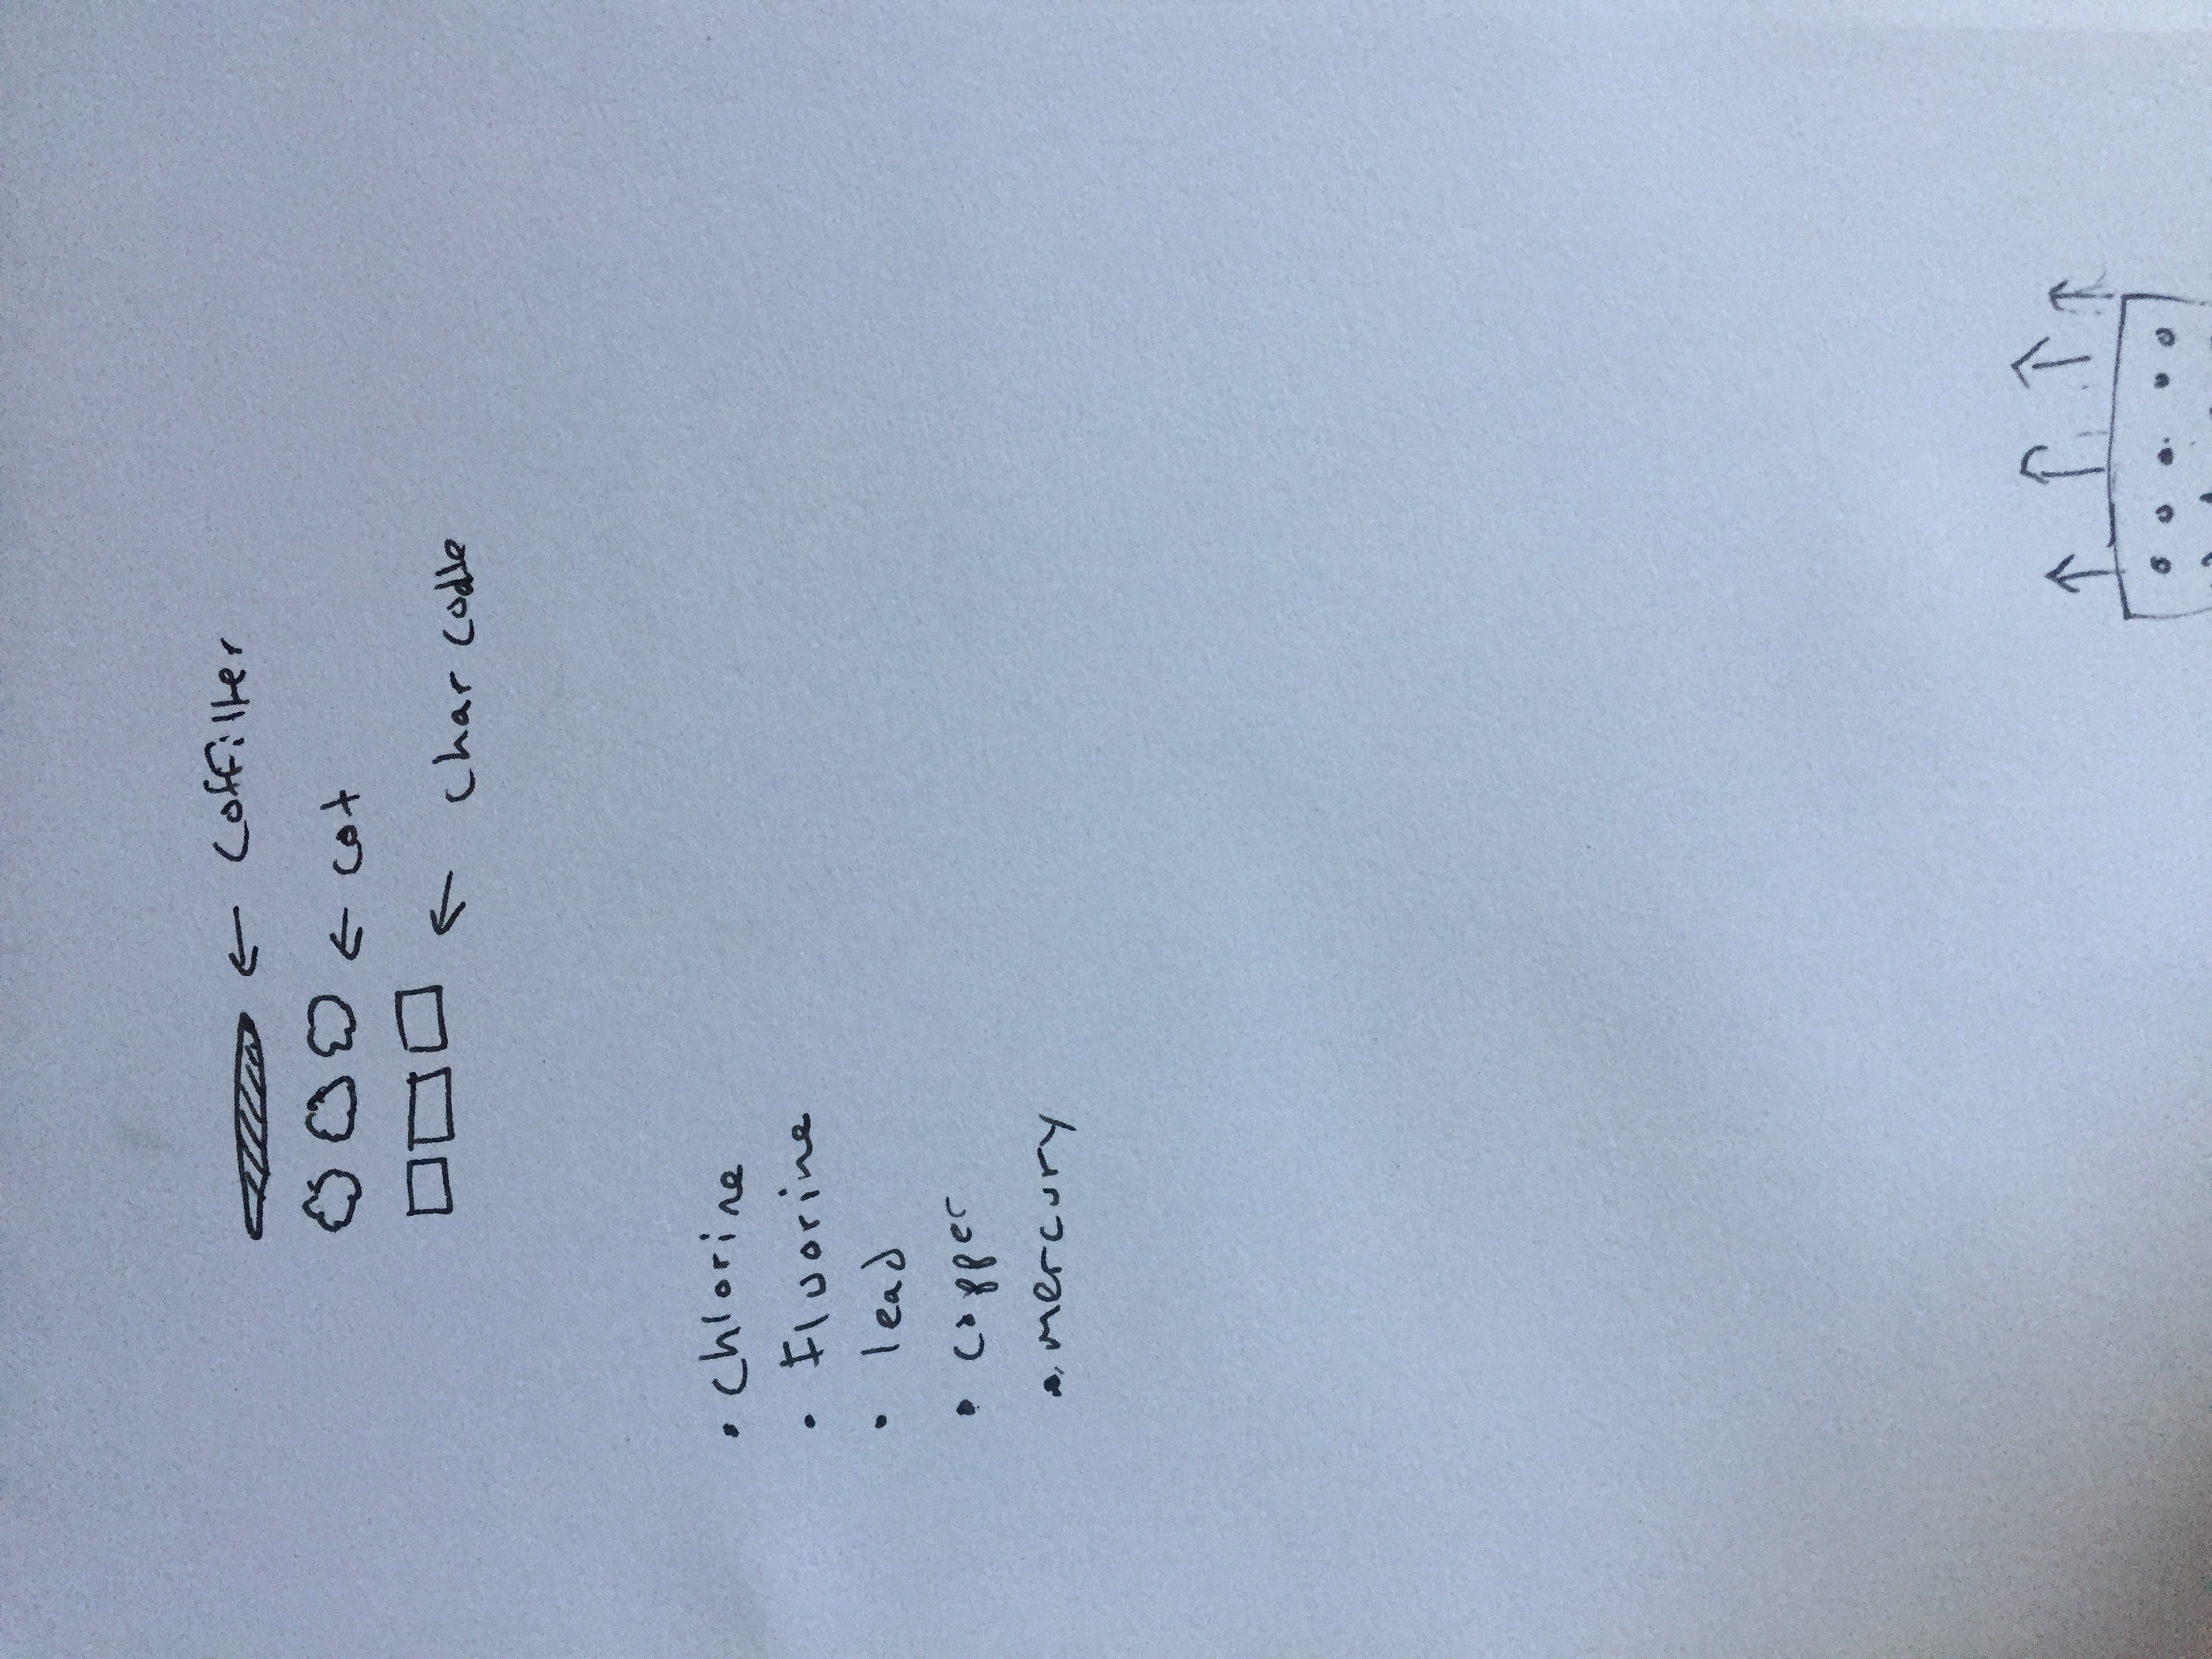 ← Coffilter
← cot
← char codle
• Chlorine
• Fluorine
• lead
• copper
• mercury